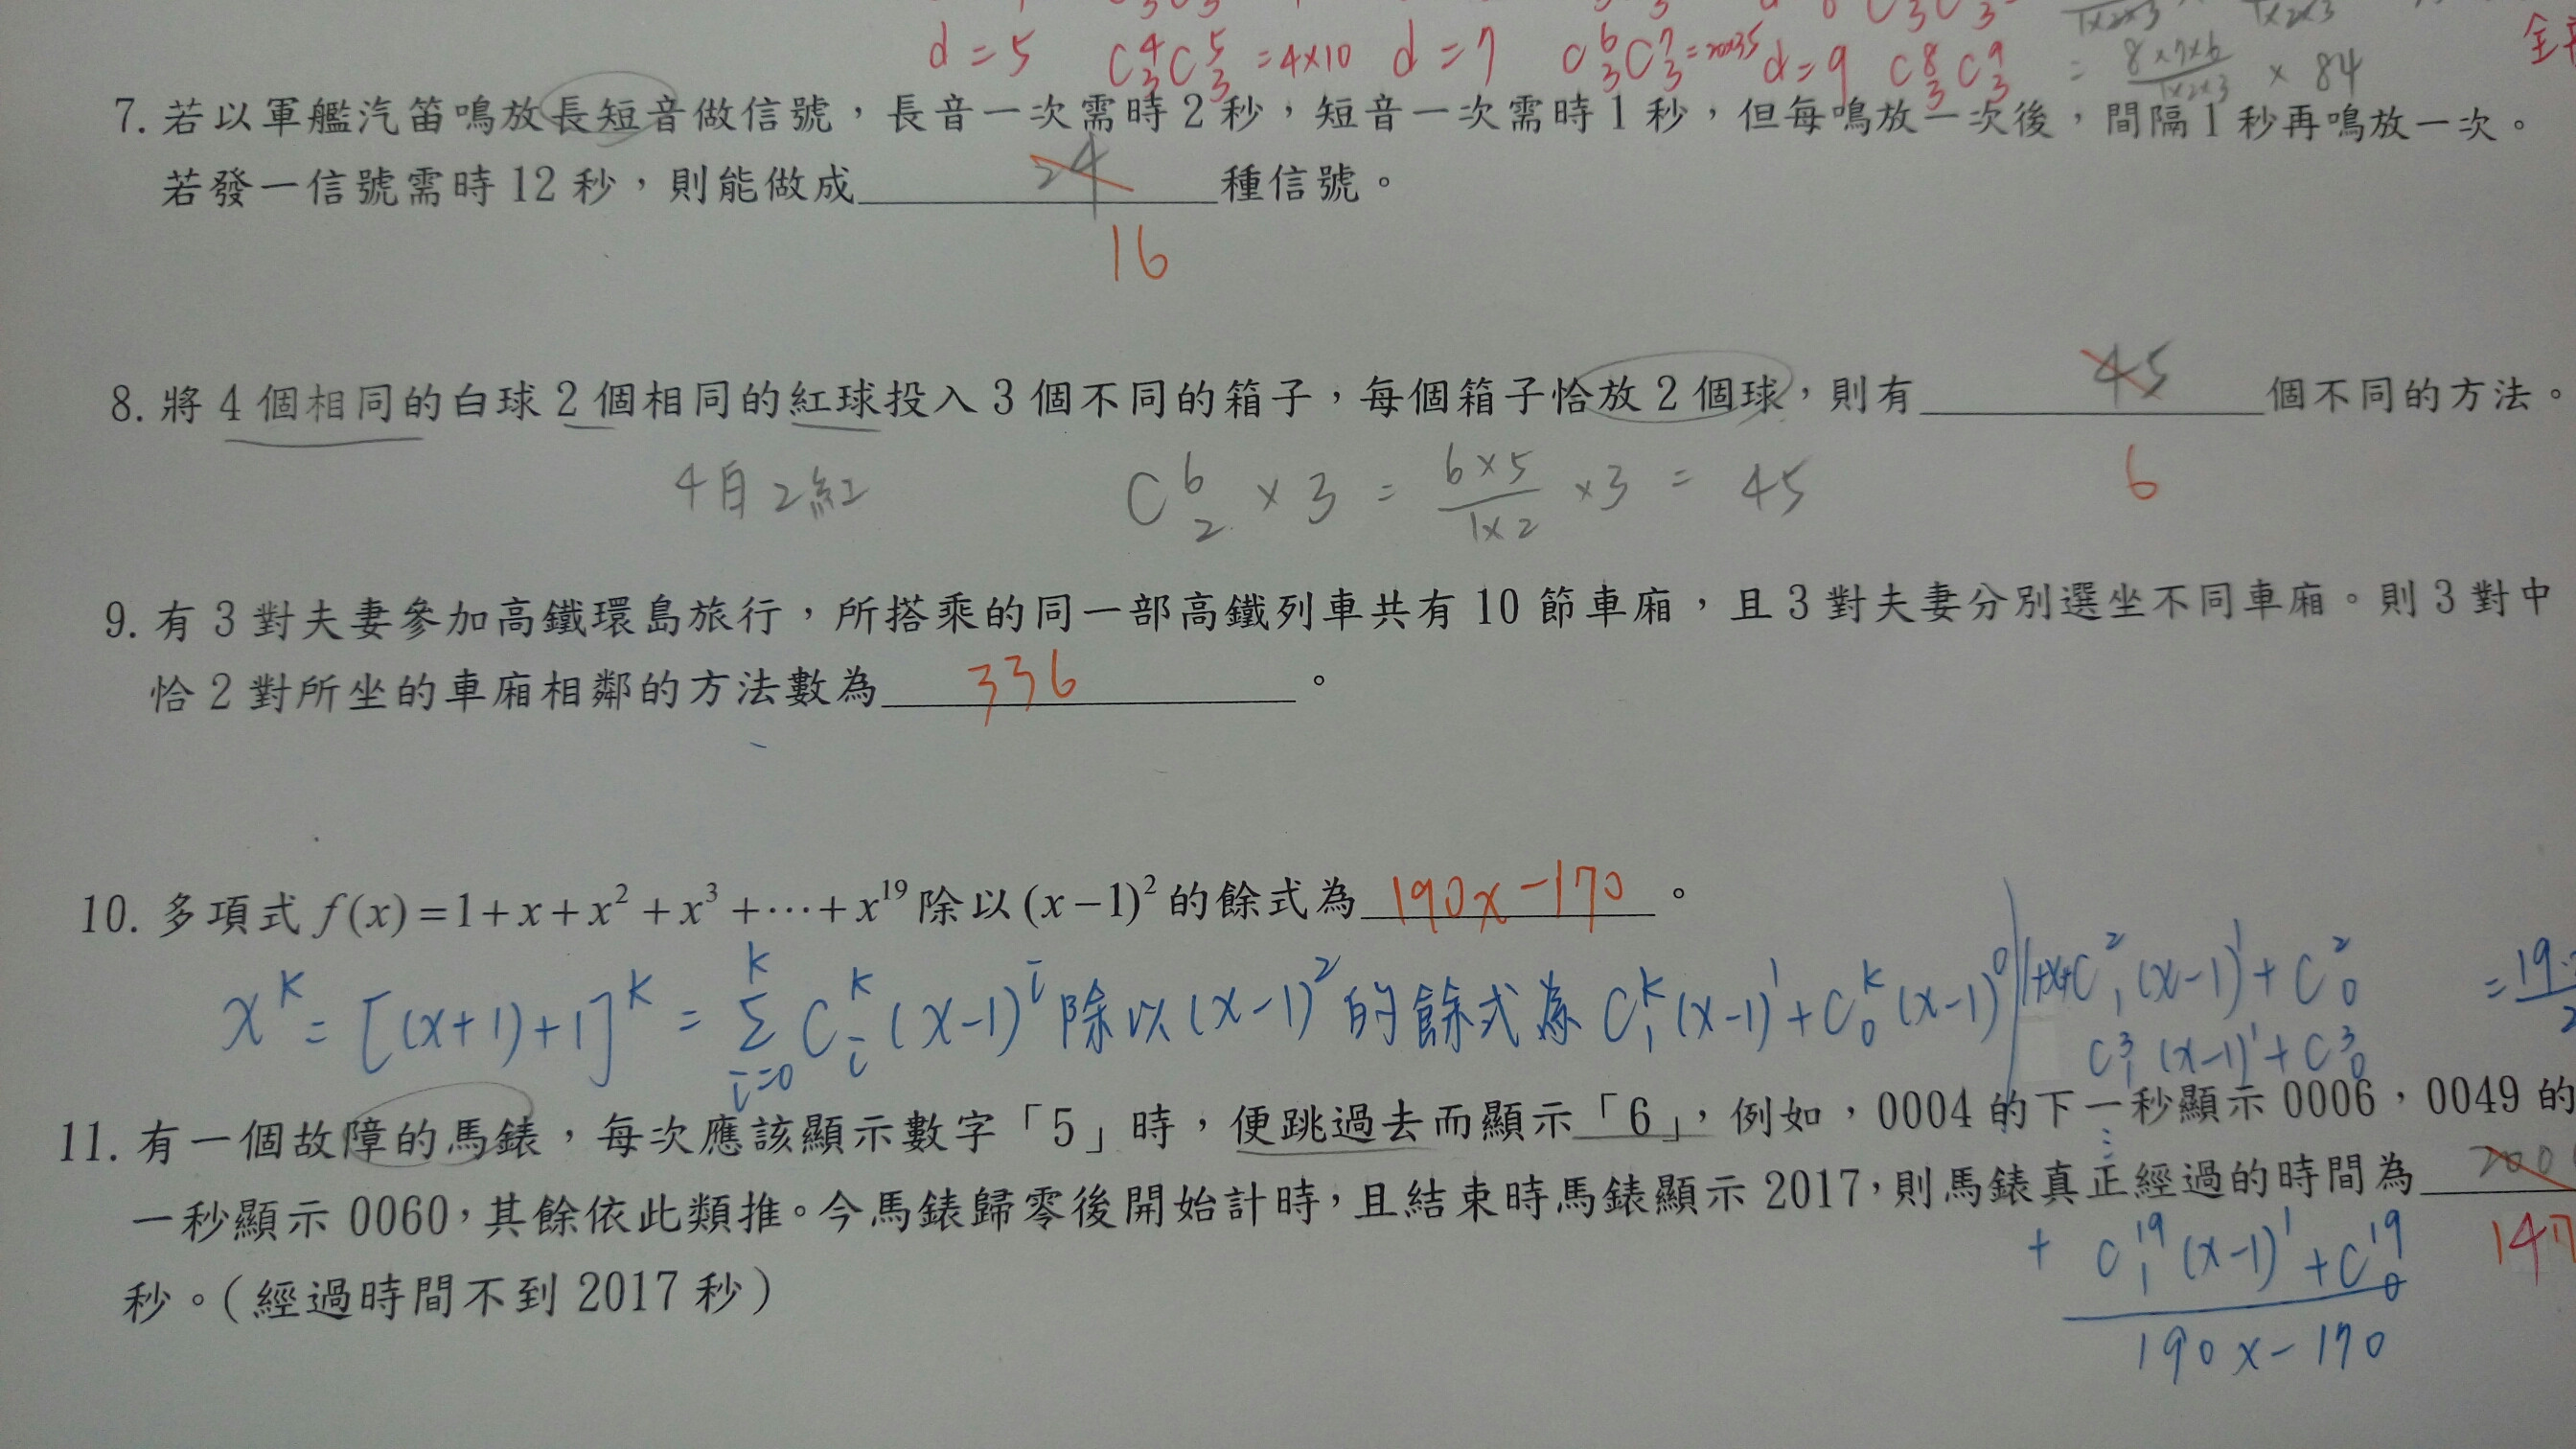 d = 5 C⁴₃C⁵₃ = 4×10 d = 7 C⁶₃C⁷₃ = 20×35 d = 9 C⁸₃C⁹₃ = 8×7×6/1×2×3 × 84
7. 若以軍艦汽笛鳴放長短音做信號，長音一次需時 2 秒，短音一次需時 1 秒，但每鳴放一次後，間隔 1 秒再鳴放一次。
若發一信號需時 12 秒，則能做成 24 種信號。
16
8. 將 4 個相同的白球 2 個相同的紅球投入 3 個不同的箱子，每個箱子恰放 2 個球，則有 45 個不同的方法。
4白 2紅 C⁶₂ × 3 = 6×5/1×2 ×3 = 45
6
9. 有 3 對夫妻參加高鐵環島旅行，所搭乘的同一部高鐵列車共有 10 節車廂，且 3 對夫妻分別選坐不同車廂。則 3 對中
恰 2 對所坐的車廂相鄰的方法數為 336 。
10. 多項式 f(x)=1+x+x²+x³+⋯+x¹⁹ 除以 (x−1)² 的餘式為 190x−170 。
xᴷ = [(x+1)+1]ᴷ = Σ Cᴷᵢ (x−1)ⁱ 除以 (x−1)² 的餘式為 Cᴷ₁(x−1)¹+Cᴷ₀(x−1)⁰ 1+x+C²₁(x−1)¹+C²₀
K
i=0
C³₁(x−1)¹+C³₀
11. 有一個故障的馬錶，每次應該顯示數字「5」時，便跳過去而顯示「6」，例如，0004 的下一秒顯示 0006，0049 的
一秒顯示 0060，其餘依此類推。今馬錶歸零後開始計時，且結束時馬錶顯示 2017，則馬錶真正經過的時間為
秒。（經過時間不到 2017 秒）
+ C¹⁹₁(x−1)¹+C¹⁹₀
190x−170